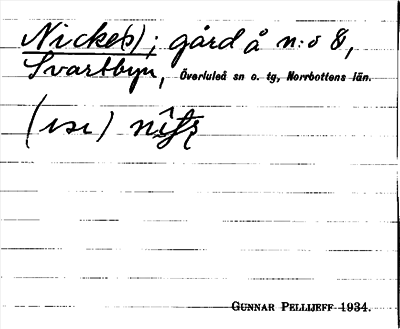 Nicke(s); gård å n:o 8,
Svartbyn, Överluleå sn o. tg, Norrbottens län.
(ɩsɩ)
GUNNAR PELLIJEFF 1934.